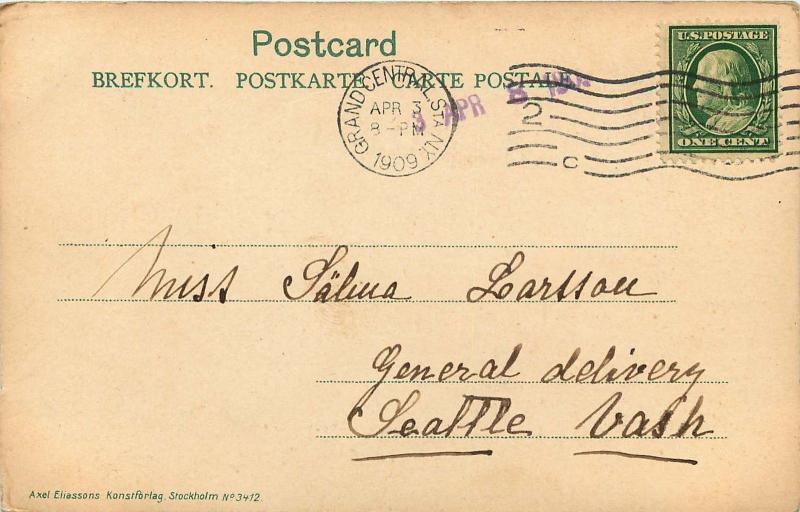 Postcard
BREFKORT. POSTKARTE. CARTE POSTALE.
U.S. POSTAGE
ONE CENT
GRAND CENTRAL STA. N.Y.
APR 3
8-PM
1909
2
C
APR 8
Miss Sälma Larsson
General delivery
Seattle Vash
Axel Eliassons Konstförlag. Stockholm No 3412.